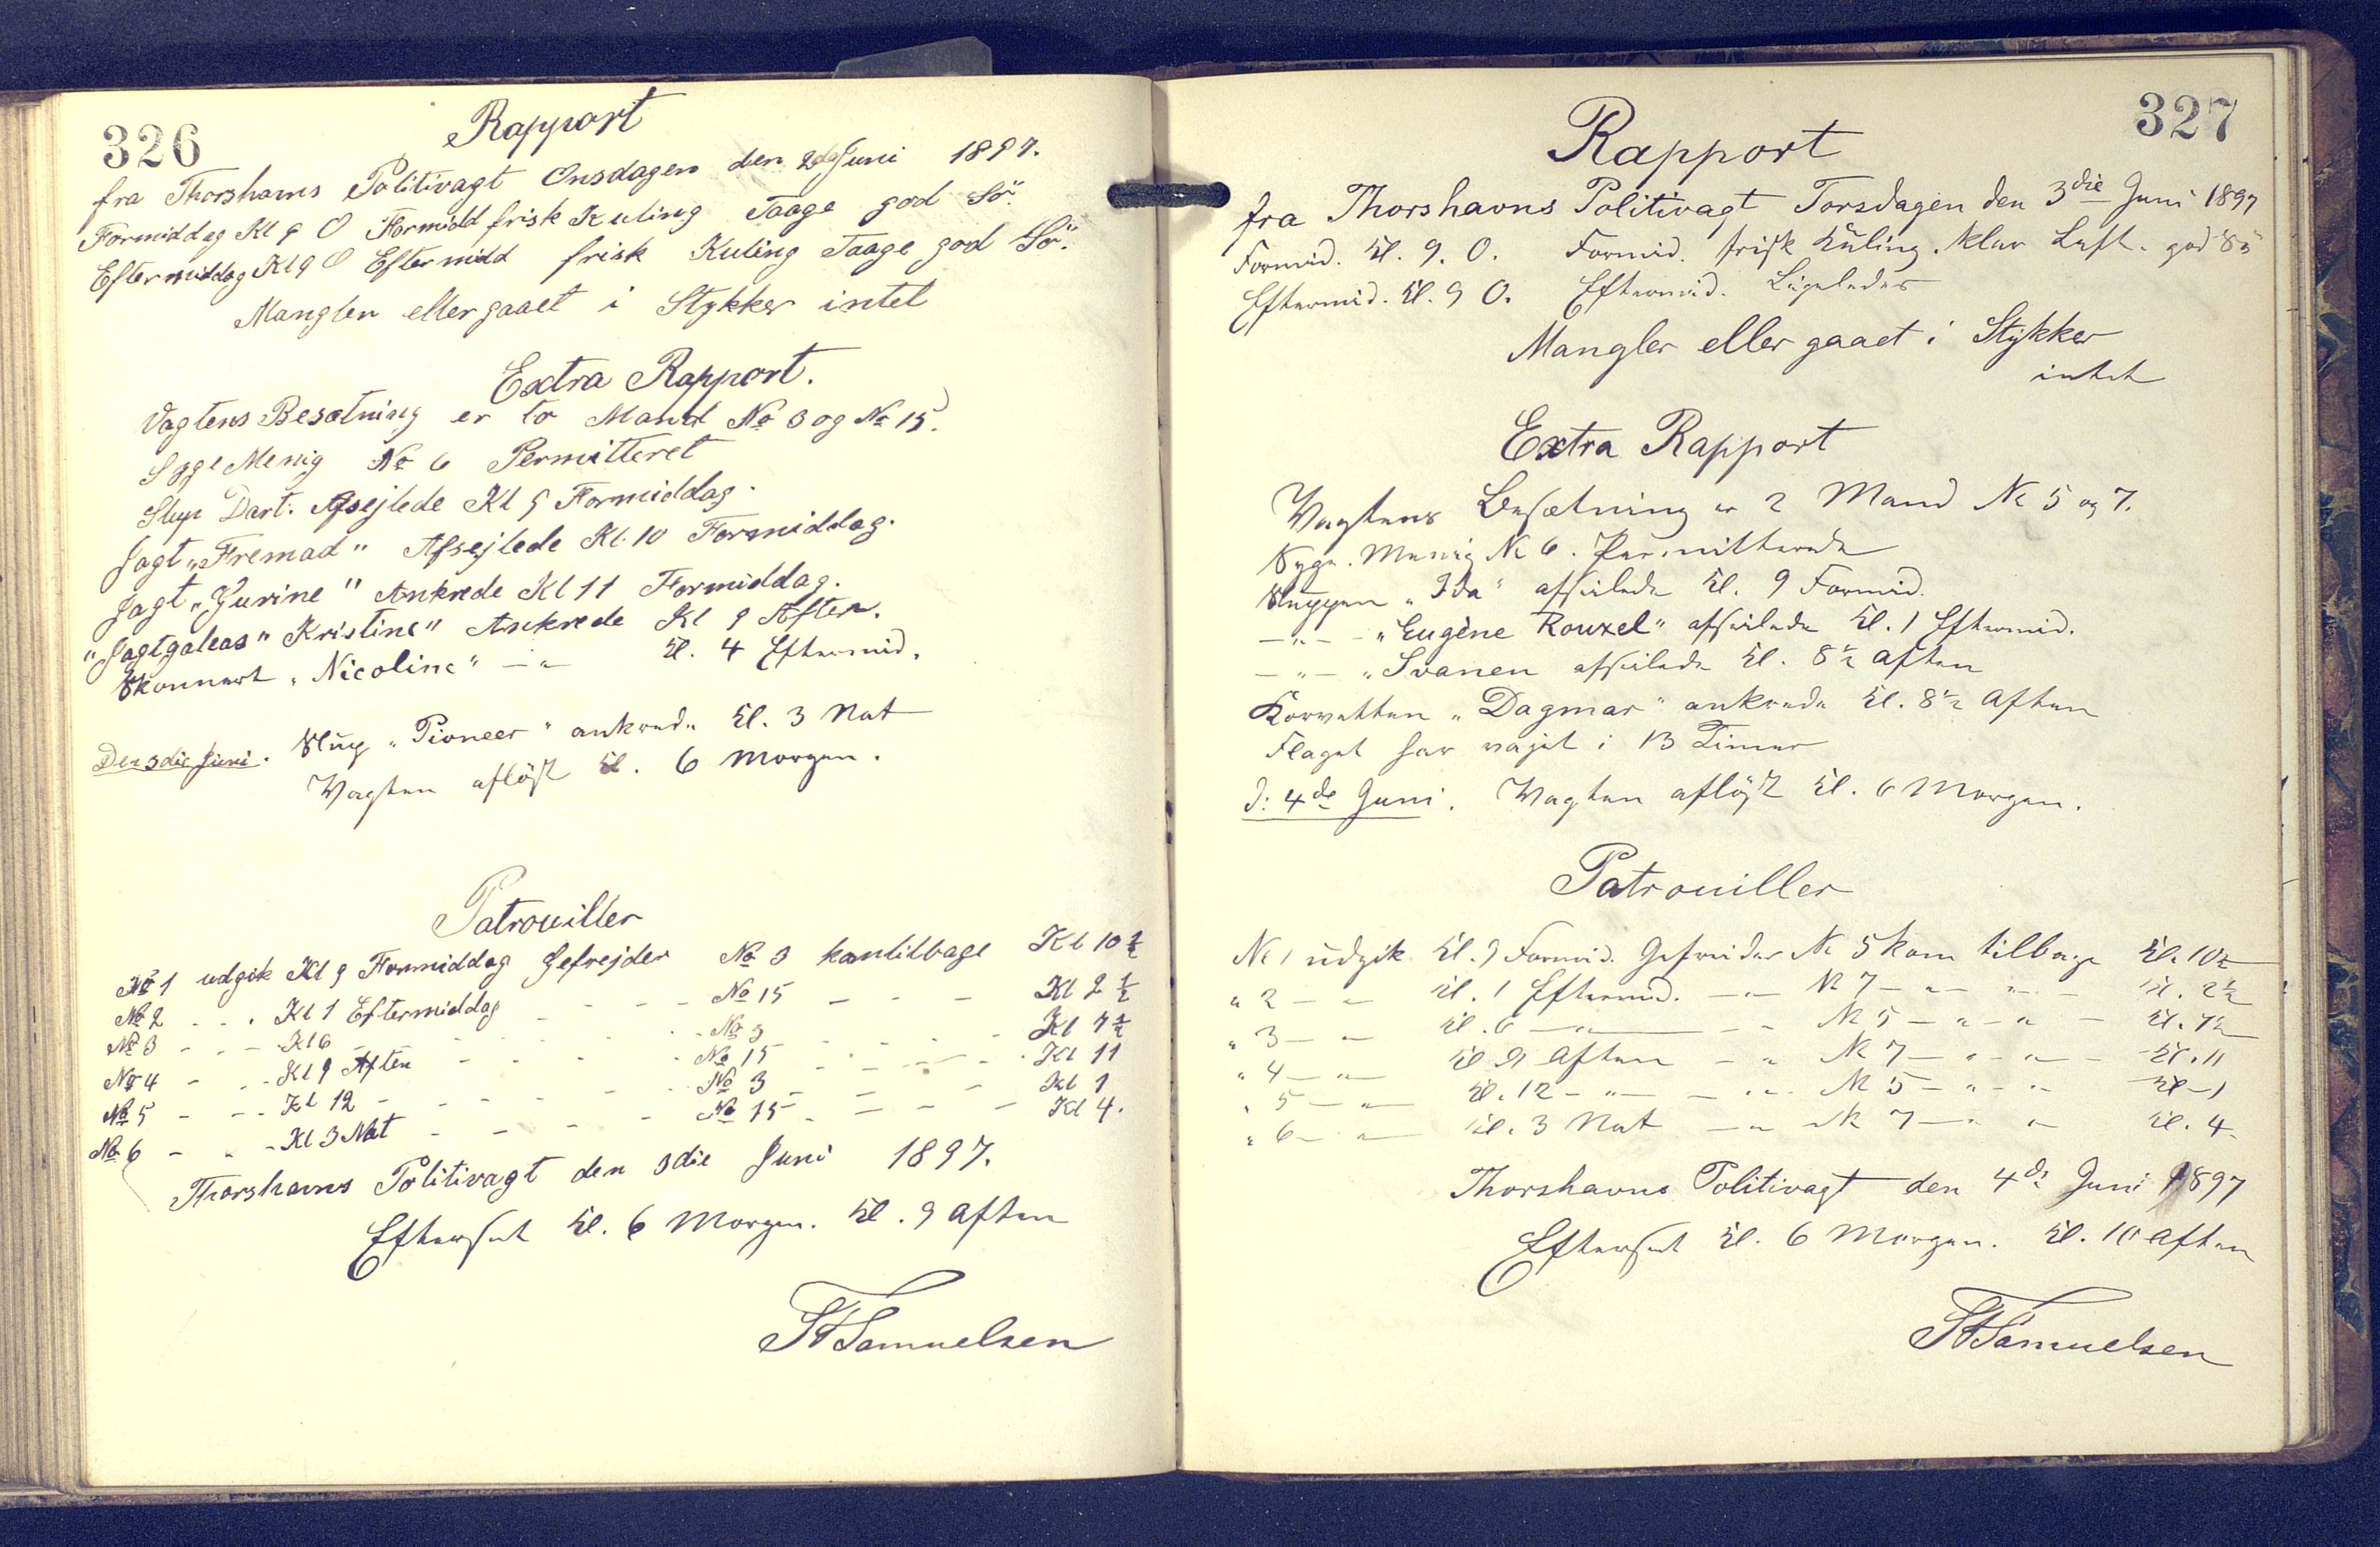 326
Rapport
fra Thorshavns Politivagt Onsdagen den 2den Juni 1897.
Formiddag Kl 9 O Formidd frisk Kuling Taage god Sö.
Eftermiddag Kl 9 O Eftermidd frisk Kuling Taage god Sö.
Mangler eller gaaet i Stykker intet
Extra Rapport.
Vagtens Besætning er to Mand No 3 og No 15.
Syge Menig No 6 Permitteret
Slup Dart. Afsejlede Kl 9 Formiddag.
Jagt „Fremad" Afsejlede Kl. 10 Formiddag.
Jagt „Jurine" Ankrede Kl 11 Formiddag.
"Jagtgaleas" Kristine" Ankrede Kl 9 Aften.
Skonnert „Nicoline" — " — Kl. 4 Eftermid.
Den 3die Juni. Slup „Pioneer" ankrede Kl. 3 Nat
Vagten aflöst Kl. 6 Morgen.
Patrouiller
No 1 udgik Kl 9 Formiddag Gefrejder No 3 kom tilbage Kl 10 ½
No 2 - - . Kl 1 Eftermiddag - - - No 15 - - - Kl 2 ½
No 3 - - - Kl 6 - - - - No 3 - - - Kl 7 ½
No 4 - - - Kl 9 Aften - - - No 15 - - - Kl 11
No 5 - - - Kl 12 - - - - No 3 - - - Kl 1
No 6 - - - Kl 3 Nat - - - - No 15 - - - Kl 4.
Thorshavns Politivagt den 3die Juni 1897.
Efterset Kl. 6 Morgen. Kl. 9 Aften
Samuelsen
327
Rapport
fra Thorshavns Politivagt Torsdagen den 3die Juni 1897
Formid. Kl. 9. O. Formid. frisk Kuling. klar Luft. god Sö
Eftermid. Kl. 9 O. Eftermid. Ligeledes
Mangler eller gaaet i Stykker
intet
Extra Rapport
Vagtens Besætning er 2 Mand No 5 og 7.
Syge. Menig No 6. Permitterede
Sluppen „Ida" afseilede Kl. 9 Formid.
— " — „Eugène Rouzel" afseilede Kl. 1 Eftermid.
— " — „Svanen afseilede Kl. 8½ Aften
Korvetten „Dagmar" ankrede Kl. 8½ Aften
Flaget har vajet i 13 Timer
d: 4de Juni. Vagten aflöst Kl. 6 Morgen.
Patrouiller
No 1 udgik Kl. 9 Formid. Gefreider No 5 kom tilbage Kl. 10½
" 2 — " — Kl. 1 Eftermid. — " No 7 — " — " — Kl. 2½
" 3 — " — Kl. 6 — " — — " No 5 — " — " — Kl. 7½
" 4 — " — Kl 9 Aften — " No 7 — " — " — Kl. 11
" 5 — " — Kl. 12 — " — — " No 5 — " — " — Kl — 1
" 6 — " — Kl. 3 Nat — " No 7 — " — " — Kl. 4
Thorshavns Politivagt den 4de Juni 1897
Efterset Kl. 6 Morgen. Kl. 10 Aften
Samuelsen